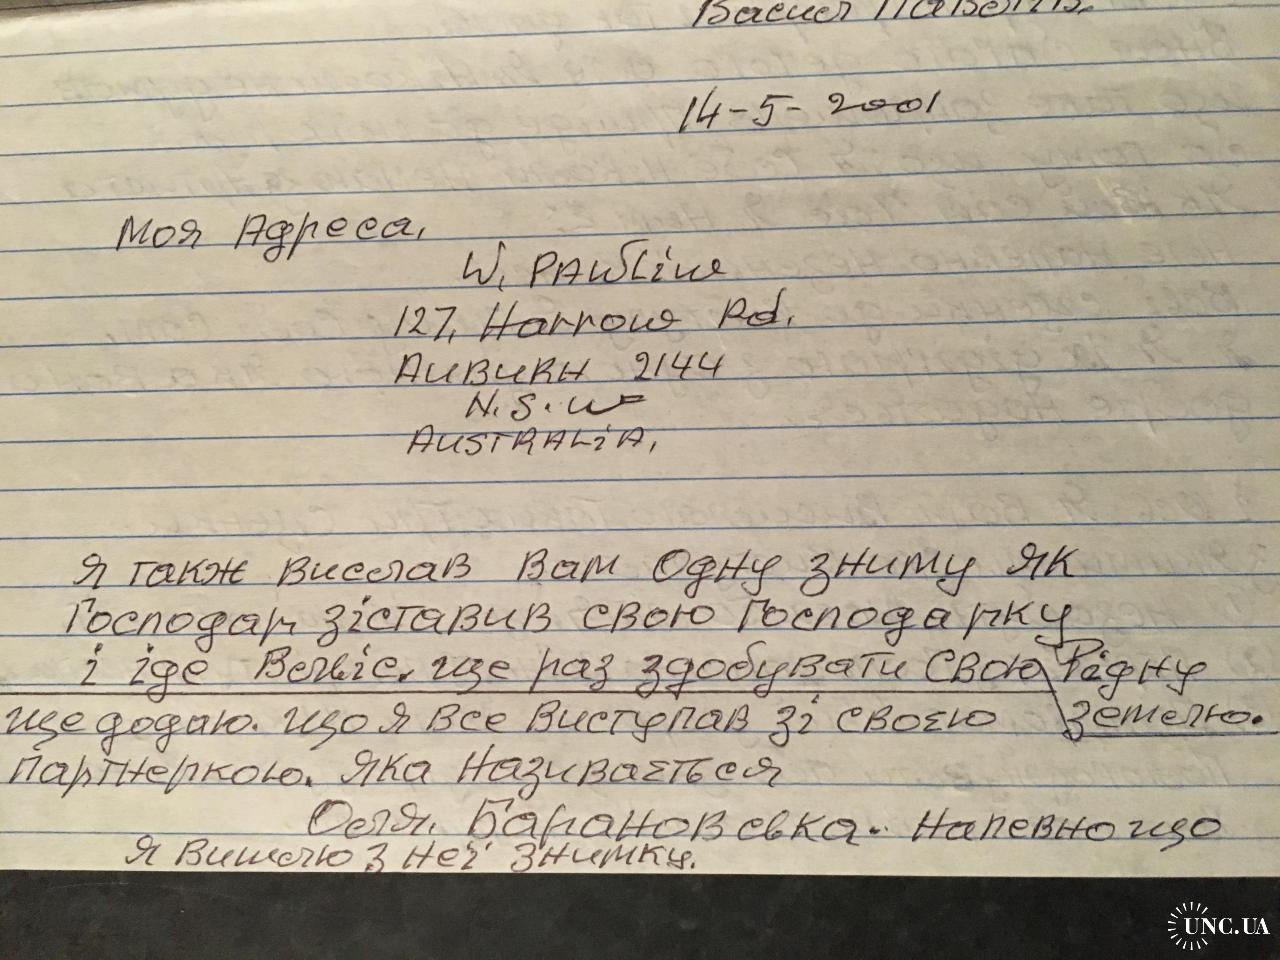 Василь
14-5-2001
Моя Адреса,
W. PAWLiw
127, Harrow Rd.
AUBURN 2144
N.S.W
AUSTRALiA,
Я також вислав вам одну зниму як
Господар зіставив свою Господарку
і іде ще раз здобувати свою Рідну
землю.
ще додаю. що я все виступав зі своєю
партнеркою. яка називається
Оля. Барановська.. напевно що
я вишлю з неї знимку.
UNC.UA